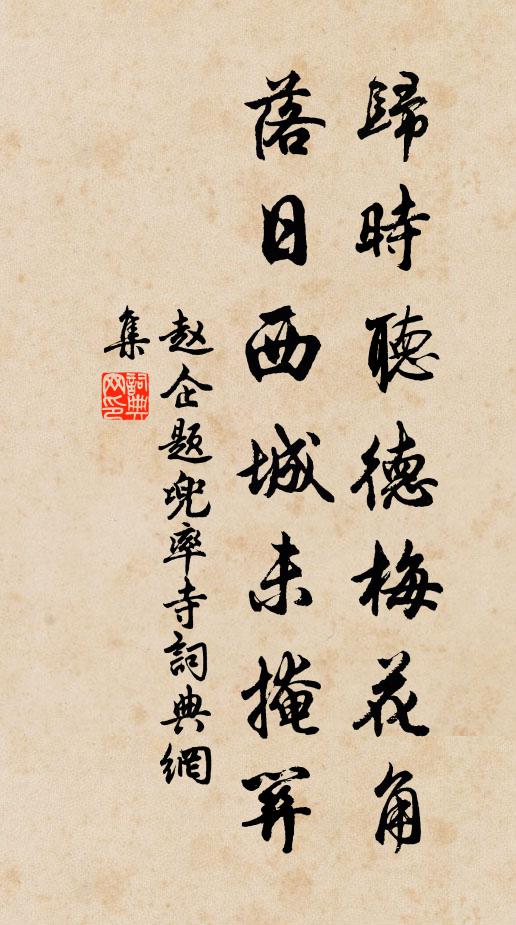 歸時聽德梅花角
落日西城未掩關
赵企題兜率寺詞典網
集
詞典网印